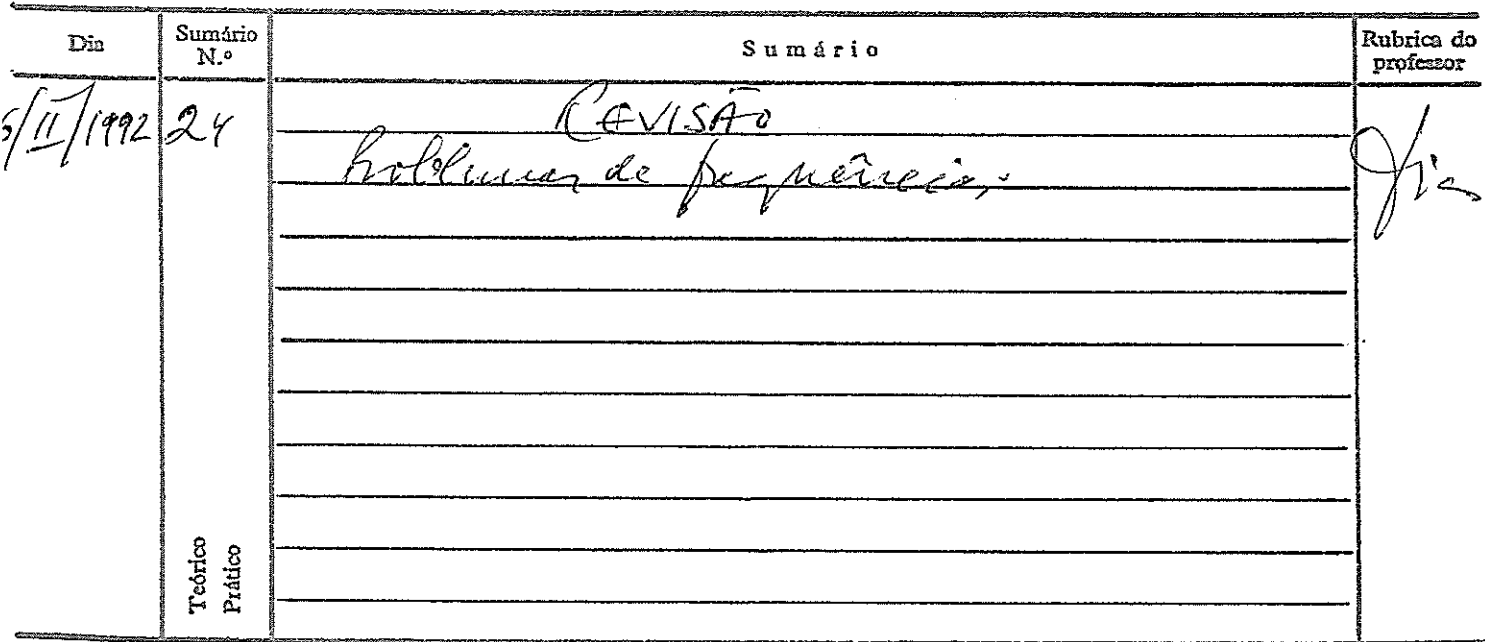 Dia
Sumário N.º
Sumário
Rubrica do professor
5/II/1992
24
REVISÃO
Problemas de frequência;
Teórico
Prático